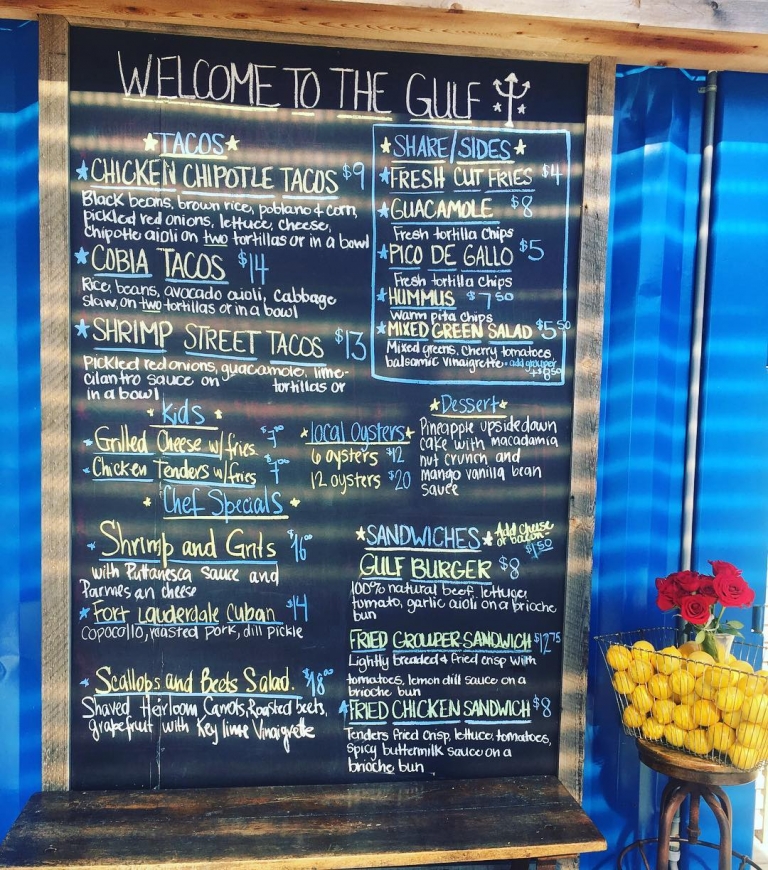 WELCOME TO THE GULF
TACOS
CHICKEN CHIPOTLE TACOS $9
Black beans, brown rice, poblano & corn,
pickled red onions, lettuce, cheese,
chipotle aioli on two tortillas or in a bowl
COBIA TACOS $14
Rice, beans, avocado aioli, Cabbage
slaw, on two tortillas or in a bowl
SHRIMP STREET TACOS $13
Pickled red onions, guacamole, lime-
cilantro sauce on tortillas or
in a bowl
SHARE/SIDES
FRESH CUT FRIES $4
GUACAMOLE $8
Fresh tortilla Chips
PICO DE GALLO $5
Fresh tortilla Chips
HUMMUS $7.50
Warm pita chips
MIXED GREEN SALAD $5.50
Mixed greens, Cherry tomatoes
balsamic vinaigrette - add grouper
+$8.50
Kids
Grilled Cheese w/fries $7.00
Chicken Tenders w/fries $7.00
local oysters
6 oysters $12
12 oysters $20
Dessert
Pineapple upsidedown
cake with macadamia
nut crunch and
mango vanilla bean
sauce
Chef Specials
Shrimp and Grits $16.00
with Puttanesca sauce and
Parmesan cheese
Fort Lauderdale Cuban $14
Copocollo, roasted pork, dill pickle
Scallops and Beets Salad. $18.00
Shaved Heirloom Carrots, Roasted beets,
grapefruit with Key lime Vinaigrette
SANDWICHES
Add Cheese
or bacon-
$1.50
GULF BURGER $8
100% natural beef, lettuce,
tomato, garlic aioli on a brioche
bun
FRIED GROUPER SANDWICH $12.75
Lightly breaded & fried crisp with
tomatoes, lemon dill sauce on a
brioche bun
FRIED CHICKEN SANDWICH $8
Tenders fried crisp, lettuce, tomatoes,
spicy buttermilk sauce on a
brioche bun